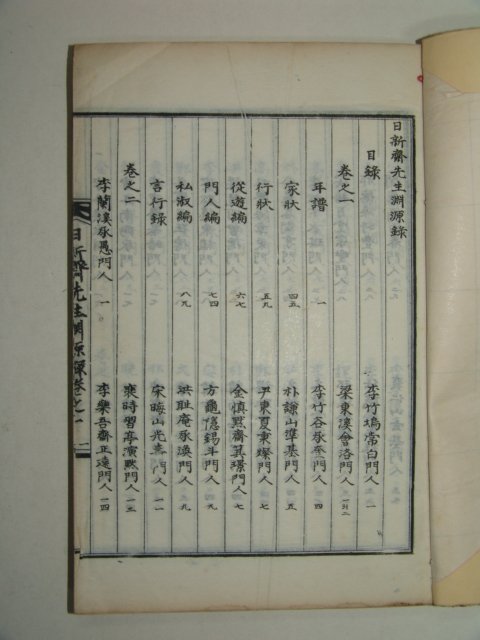 日新齋先生淵源錄
目錄
卷之一
年譜 一
家狀 四五
行狀 五九
從遊編 六七
門人編 七四
私淑編 八九
言行錄
卷之二
李蘭溪承愚門人 一
李竹塢常白門人 一
梁東溪會洛門人
李竹谷承奎門人 四
朴謙山準基門人 五
尹東夏秉燦門人 七
金慎默齋其璟門人 七
方龜隱錫斗門人 四九
洪耻庵承渙門人 九
宋晦山光 門人 一一
裵時習亭演默門人 一三
李樂吾齋正遠門人 一四
日新齋先生淵源錄卷之一